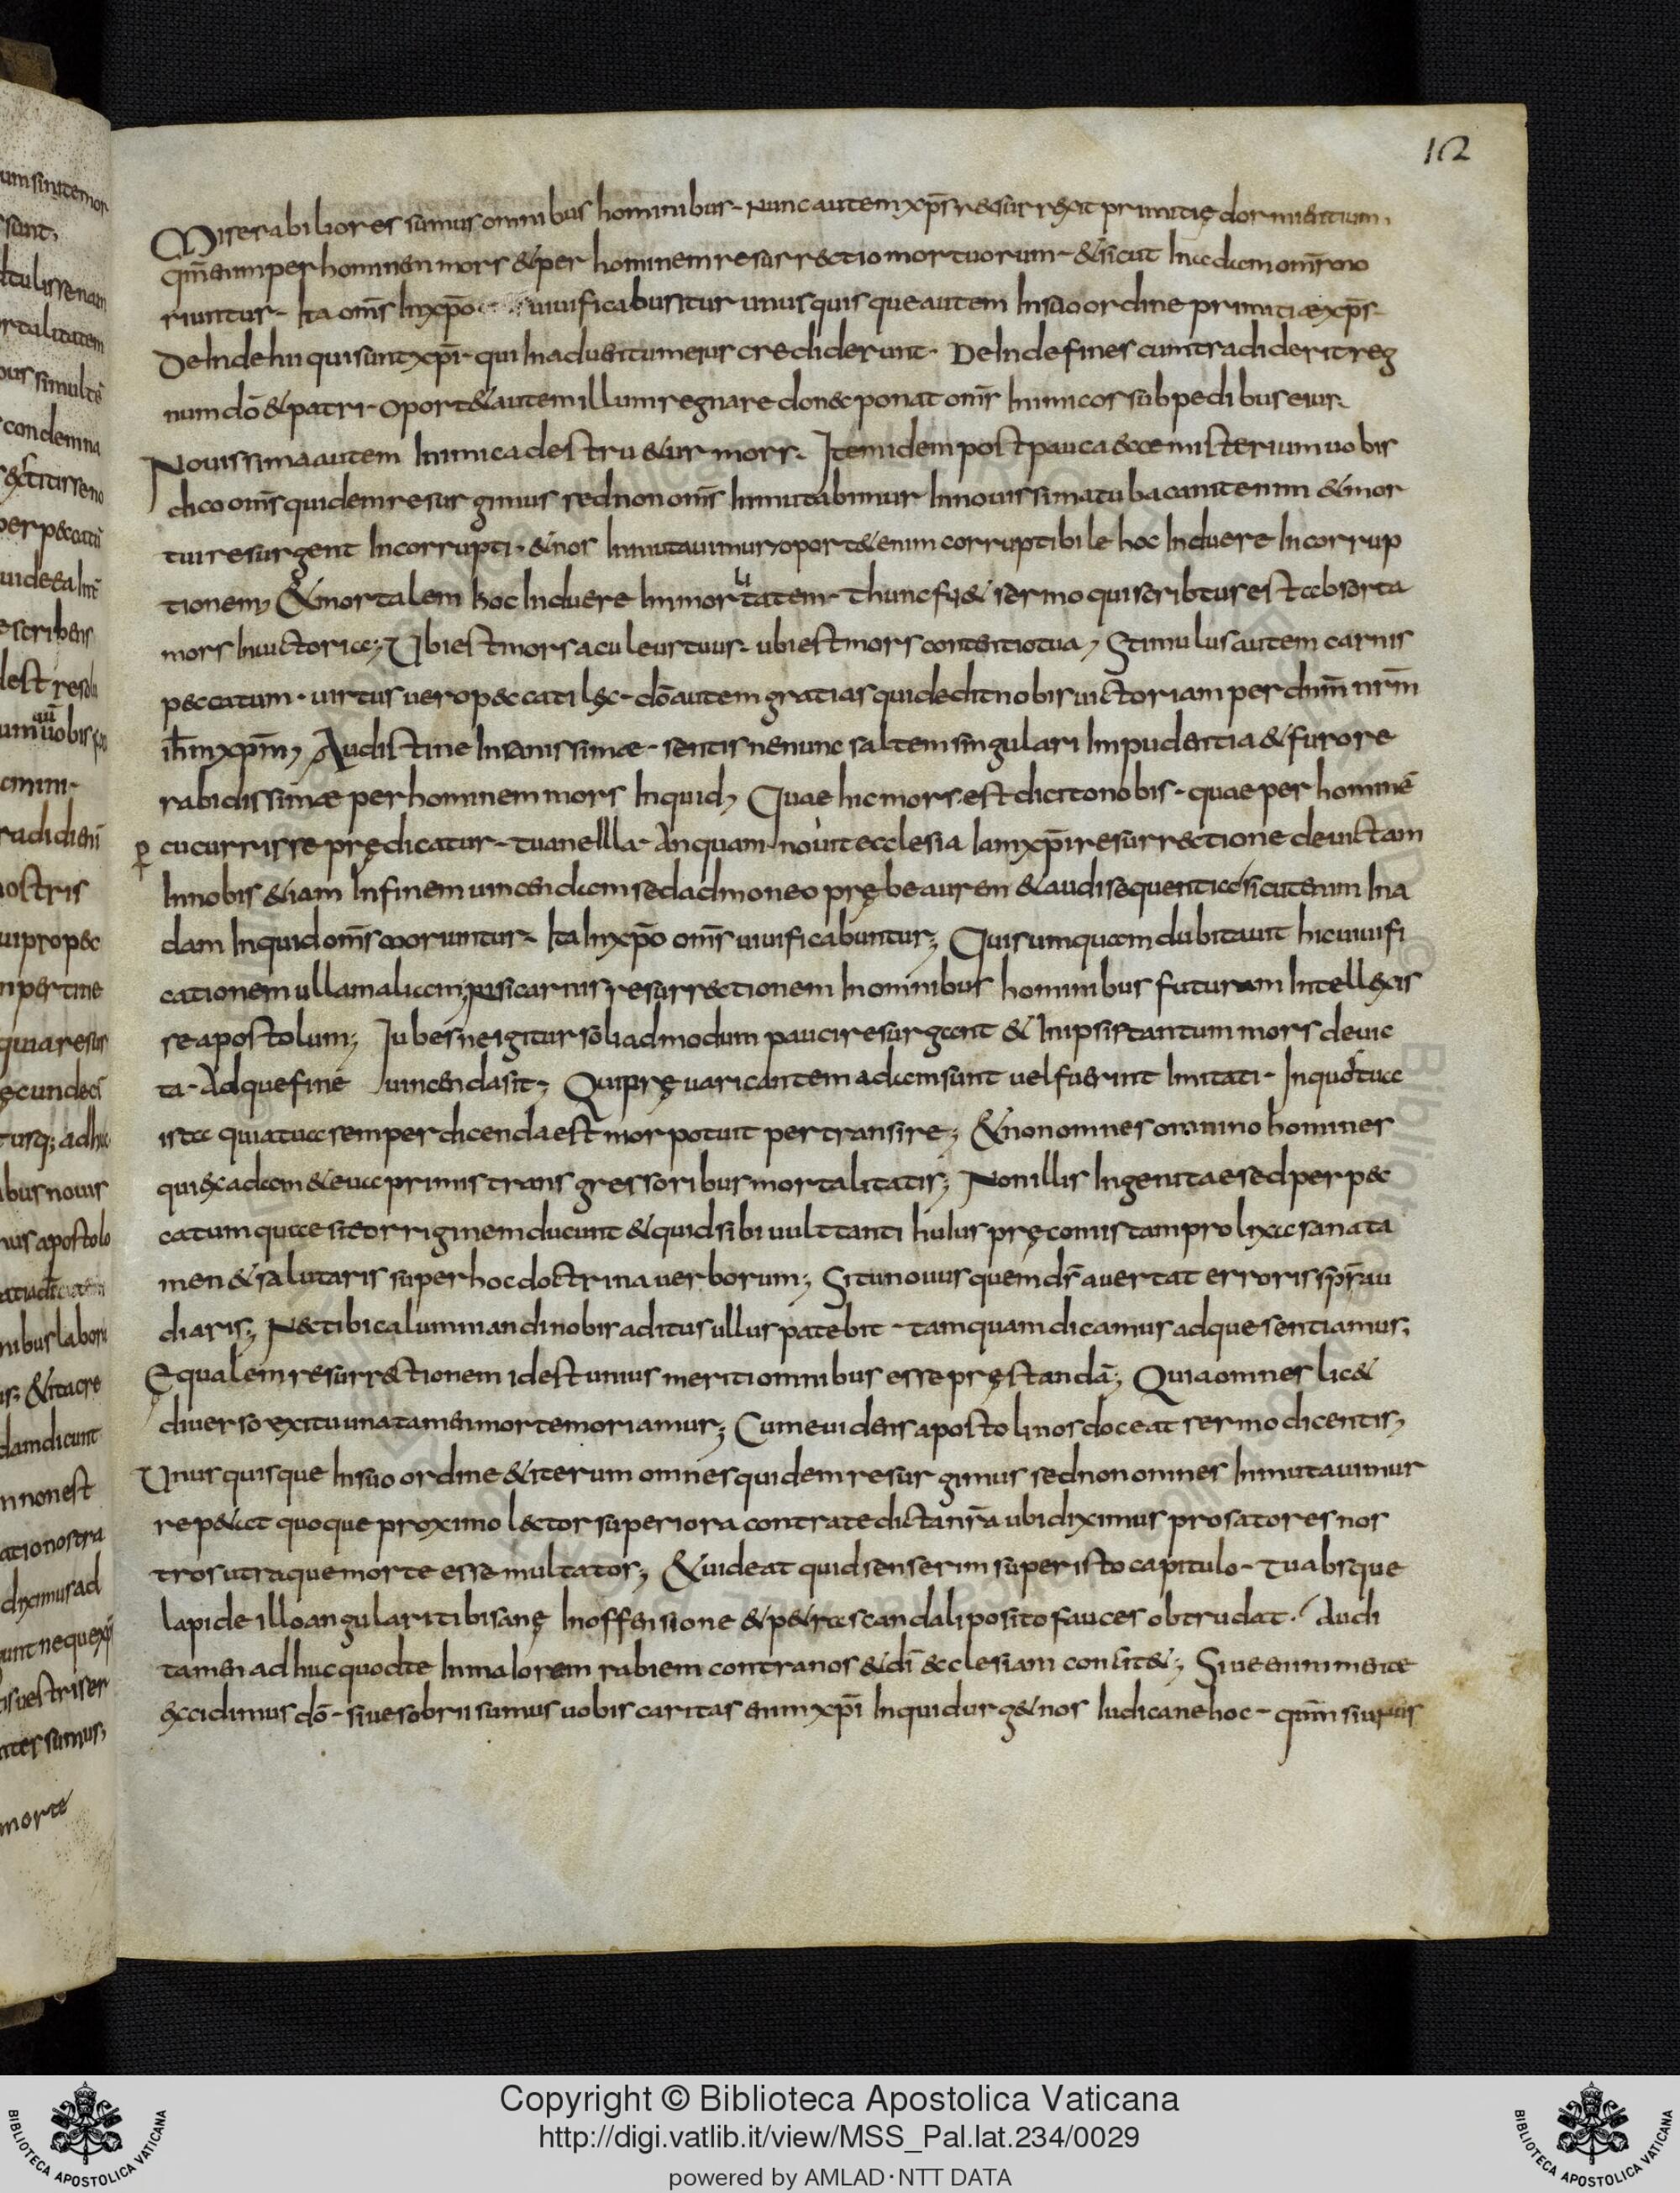 12
Miserabiliores sumus omnibus hominibus. Nunc autem xp̄s resurrexit primitię dormientium.
qm̄ enim per hominem mors & per hominem resurrectio mortuorum. & sicut In adam om̄s mo
riuntur. Ita om̄s In xp̄o uiuificabuntur unusquisque autem In suo ordine primitiæ xp̄s.
DeInde hii qui sunt xp̄i. qui In aduentum eius crediderunt. DeInde fines cum tradiderit reg
num dō & patri. Oport& autem illum regnare donec ponat om̄s Inimicos sub pedibus eius.
Nouissima autem Inimica destru&ur mors. Item idem post pauca ecce misterium uobis
dico om̄s quidem resurgimus sed non om̄s Inmutabimur In nouissima tuba canit enim & mor
tui resurgent Incorrupti. & nos Inmutauimur, oport& enim corruptibile hoc Induere Incorrup
tionem, & mortalem hoc Induere Inmortalitatem. thunc fi& sermo qui scribtus est absorta
mors In uictoria; Ubi est mors aculeus tuus. ubi est mors contentio tua, Stimulus autem carnis
peccatum. uirtus uero peccati lex. dō autem gratias qui dedit nobis uictoriam per dnm̄ nrm̄
ih̄m xp̄m, Audistine Insanissimæ. sentisne nunc saltem singulari Impudentia & furore
rabidissimæ per hominem mors Inquid, Quae hic mors est dicito nobis. quae per hominē
p cucurrisse prędicatur. tuane Illa. Anquam nouit ecclesia Iam xp̄i resurrectione deuictam
In nobis &iam In finem uincendam sed admoneo prębe aurem & audi sequentia sicut enim In a
dam Inquid om̄s moriuntur. Ita In xp̄o om̄s uiuificabuntur; Quis umquam dubitauit hic uiuifi
cationem ullam aliam, nisi carnis resurrectionem In omnibus hominibus futuram Intellexis
se apostolum; Iubesne igitur soli admodum pauci resurgant & In ipsis tantum mors deuic
ta. Adque fine uincenda sit; Qui pręuaricantem adam sunt uel fuerint Imitati. In quos tua
ista quia tua semper dicenda est mors potuit pertransire; & non omnes omnino homines
qui ex adam & eua primis transgressoribus mortalitatis; Non illis Ingenitae sed per pec
catum quaesite orriginem ducunt & quid sibi uult tanti huIus pręconis tam prolixa sana ta
men & salutaris super hoc doctrina uerborum; Si tu nouus quem dr̄ auertat erroris spr̄ au
diaris; Nec tibi calumniandi nobis aditus ullus patebit. tamquam dicamus adque sentiamus;
Equalem resurrectionem id est unius meriti omnibus esse pręstandā; Quia omnes lic&
diuerso exitu una tamen morte moriamur; Cum euidens apostoli nos doceat sermo dicentis,
Unusquisque In suo ordine & iterum omnes quidem resurgimus sed non omnes Inmutauimur
rep&at quoque proximo lector superiora contra te dicta nr̄a ubi diximus prosatores nos
tros utraque morte esse multatos; & uideat quid senserim super isto capitulo. Tu absque
lapide illo angulari tibi sanę In offensione & p&ra scandali posito fauces obtrudat. Audi
tamen adhuc quod te In maiorem rabiem contra nos & dī ecclesiam concit&; Siue enim mente
excidimus dō. siue sobrii sumus uobis caritas enim xp̄i Inquid urg& nos Iudicane hoc. qnm̄ si unus
Copyright © Biblioteca Apostolica Vaticana
http://digi.vatlib.it/view/MSS_Pal.lat.234/0029
powered by AMLAD·NTT DATA
BIBLIOTECA APOSTOLICA VATICANA
BIBLIOTECA APOSTOLICA VATICANA